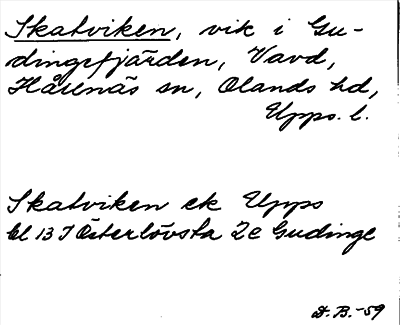 Skatviken, vik i Gu-
dingefjärden, Vavd,
Hållnäs sn, Olands hd,
Upps. l.
Skatviken ek Upps
bl 13 J Österlövsta 2e Gudinge
D. B. -59